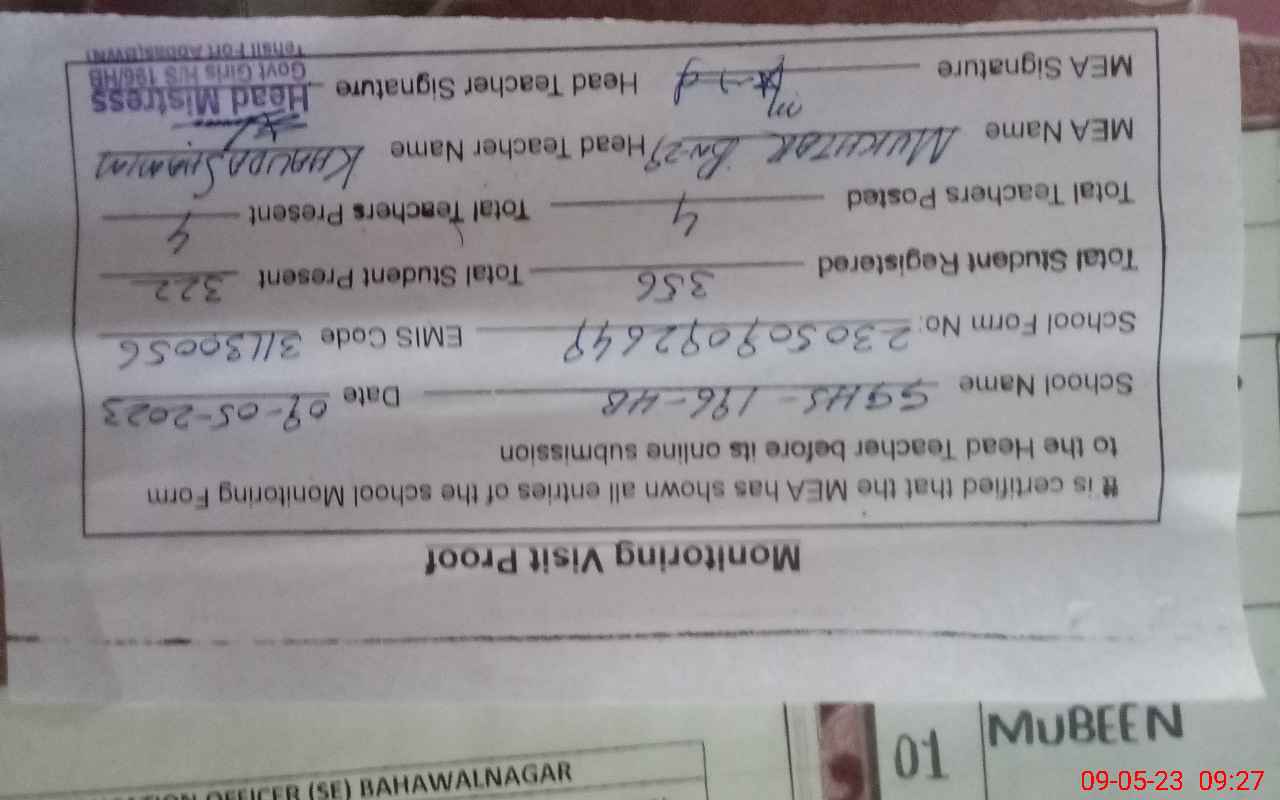 Monitoring Visit Proof
It is certified that the MEA has shown all entries of the school Monitoring Form
to the Head Teacher before its online submission
School Name GGHS - 196-HB Date 09-05-2023
School Form No: EMIS Code 31130056
Total Student Registered 356 Total Student Present 322
Total Teachers Posted 4 Total Teachers Present 4
MEA Name MUKHTAR BN-29 Head Teacher Name KHALIDA SHAMIM
MEA Signature Head Teacher Signature
Head Mistress
Govt Girls H/S 196/HB
Tehsil Fort Abbas(BWN)
OFFICER (SE) BAHAWALNAGAR
01 MUBEEN
09-05-23 09:27